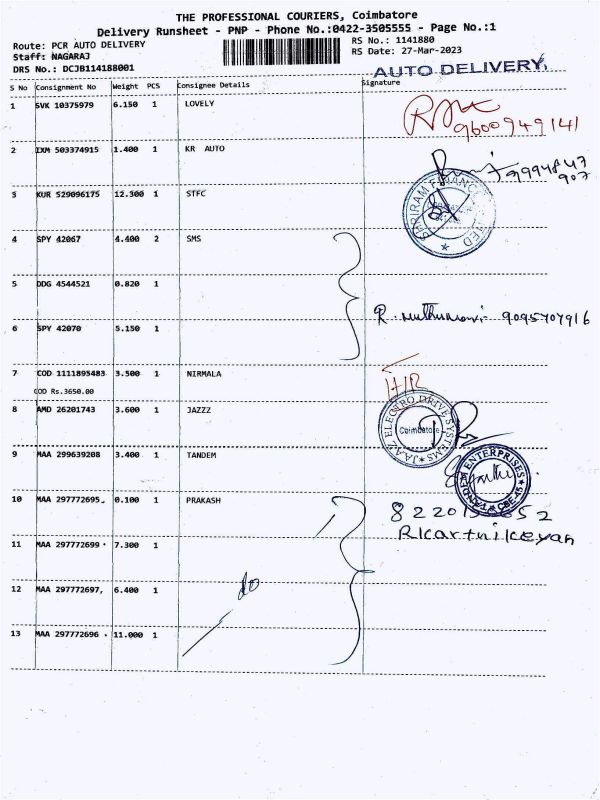 THE PROFESSIONAL COURIERS, Coimbatore
Delivery Runsheet - PNP - Phone No.:0422-3505555 - Page No.:1
Route: PCR AUTO DELIVERY
Staff: NAGARAJ
DRS No.: DCJB114188001
RS No.: 1141880
RS Date: 27-Mar-2023
AUTO DELIVERY.
S No Consignment No Weight PCS Consignee Details Signature
1 SVK 10375979 6.150 1 LOVELY
9600949141
2 IXM 503374915 1.400 1 KR AUTO
3 KUR 529096175 12.300 1 STFC
SHRIRAM FINANCE LIMITED
4 SPY 42067 4.400 2 SMS
5 DDG 4544521 0.820 1
R. Muthumani 9095707916
6 SPY 42070 5.150 1
7 COD 1111895483 3.500 1 NIRMALA
COD Rs.3650.00
H/R
8 AMD 26201743 3.600 1 JAZZZ
JAAZ ELECTRO DRIVE SYSTEMS
Coimbatore
9 MAA 299639208 3.400 1 TANDEM
TANDEM ENTERPRISES
CBE-45
10 MAA 297772695 0.100 1 PRAKASH
R Kartnikeyan
11 MAA 297772699 7.300 1
12 MAA 297772697, 6.400 1
do
13 MAA 297772696 11.000 1